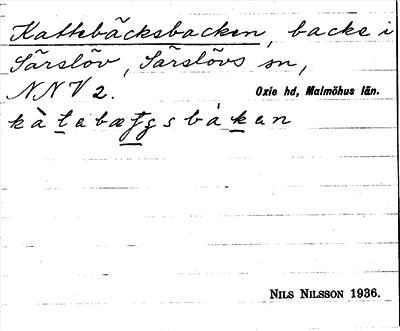 Kattebäcksbacken, backe i
Särslöv, Särslövs sn,
NNV2. Oxie hd, Malmöhus län.
NILS NILSSON 1936.